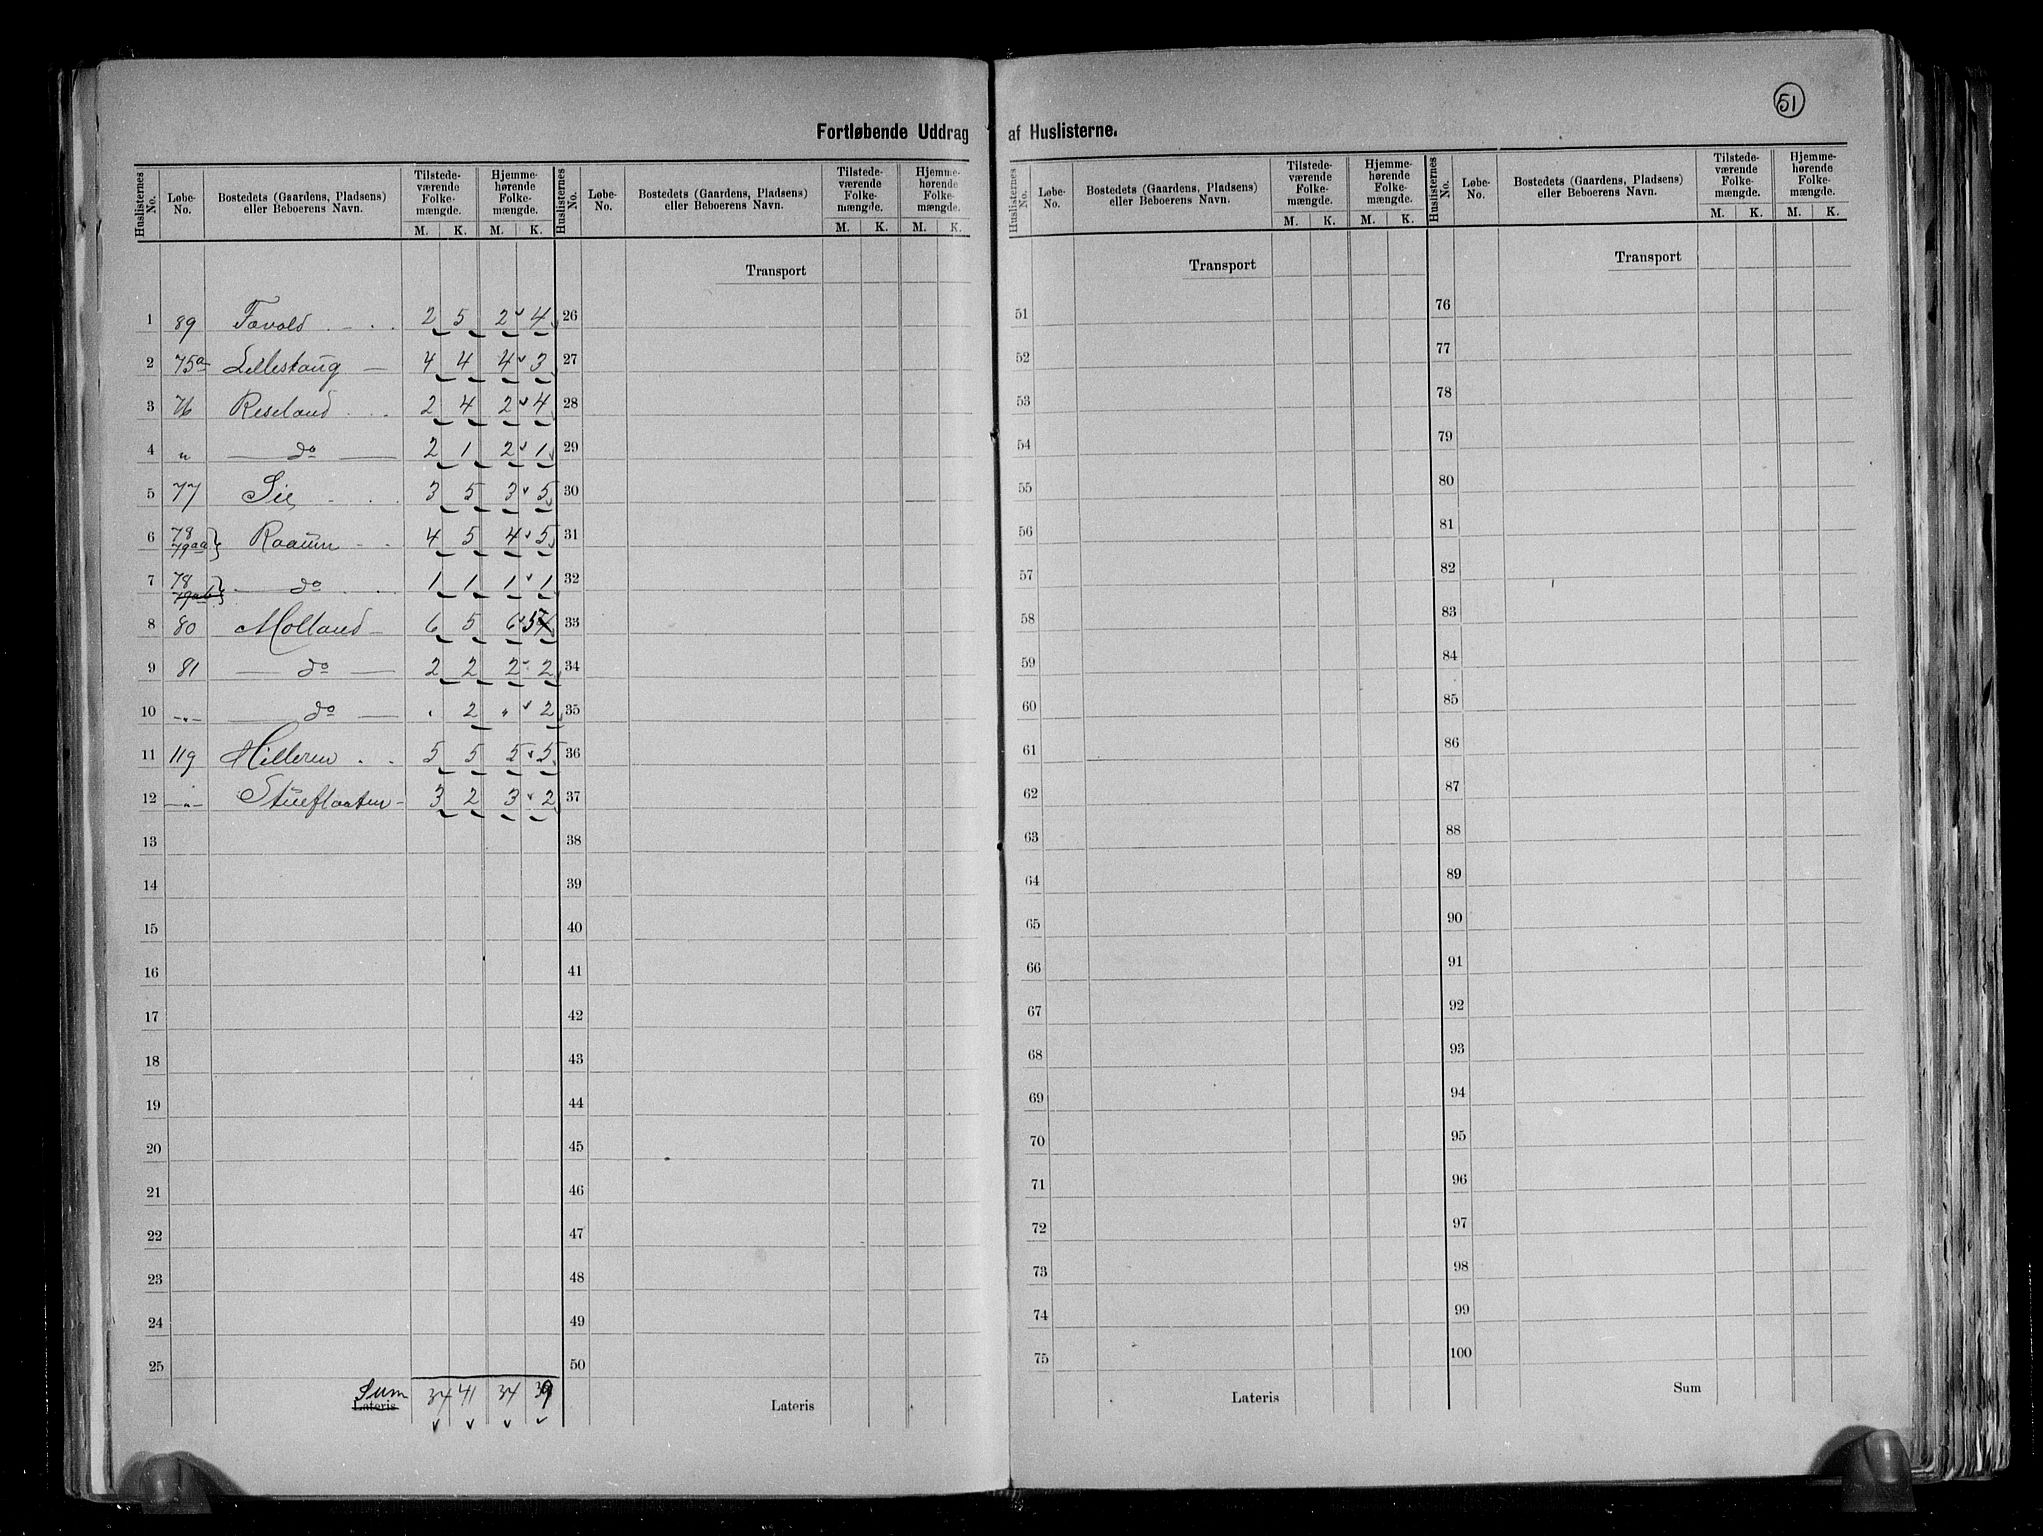 51
Fortløbende Uddrag af Huslisterne.
Huslisternes No. Løbe-No. Bostedets (Gaardens, Pladsens) eller Beboerens Navn. Tilstede-værende Folke-mængde. M. K. Hjemme-hørende Folke-mængde. M. K.
Huslisternes No. Løbe-No. Bostedets (Gaardens, Pladsens) eller Beboerens Navn. Tilstede-værende Folke-mængde. M. K. Hjemme-hørende Folke-mængde. M. K.
Huslisternes No. Løbe-No. Bostedets (Gaardens, Pladsens) eller Beboerens Navn. Tilstede-værende Folke-mængde. M. K. Hjemme-hørende Folke-mængde. M. K.
Huslisternes No. Løbe-No. Bostedets (Gaardens, Pladsens) eller Beboerens Navn. Tilstede-værende Folke-mængde. M. K. Hjemme-hørende Folke-mængde. M. K.
1 89 2 5 2 4
2 75a Lillestaug 4 4 4 3
3 76 Reseland 2 4 2 4
4 " do 2 1 2 1
5 77 3 5 3 5
6 78 79aa Raaum 4 5 4 5
7 78 79ab do 1 1 1 1
8 80 Molland 6 5 6 5
9 81 do 2 2 2 2
10 " do . 2 " 2
11 119 Hilleren 5 5 5 5
12 " Stueflaaten 3 2 3 2
13
14
15
16
17
18
19
20
21
22
23
24
25
Sum Lateris 34 41 34 39
Transport
26
27
28
29
30
31
32
33
34
35
36
37
38
39
40
41
42
43
44
45
46
47
48
49
50
Lateris
Transport
51
52
53
54
55
56
57
58
59
60
61
62
63
64
65
66
67
68
69
70
71
72
73
74
75
Lateris
Transport
76
77
78
79
80
81
82
83
84
85
86
87
88
89
90
91
92
93
94
95
96
97
98
99
100
Sum